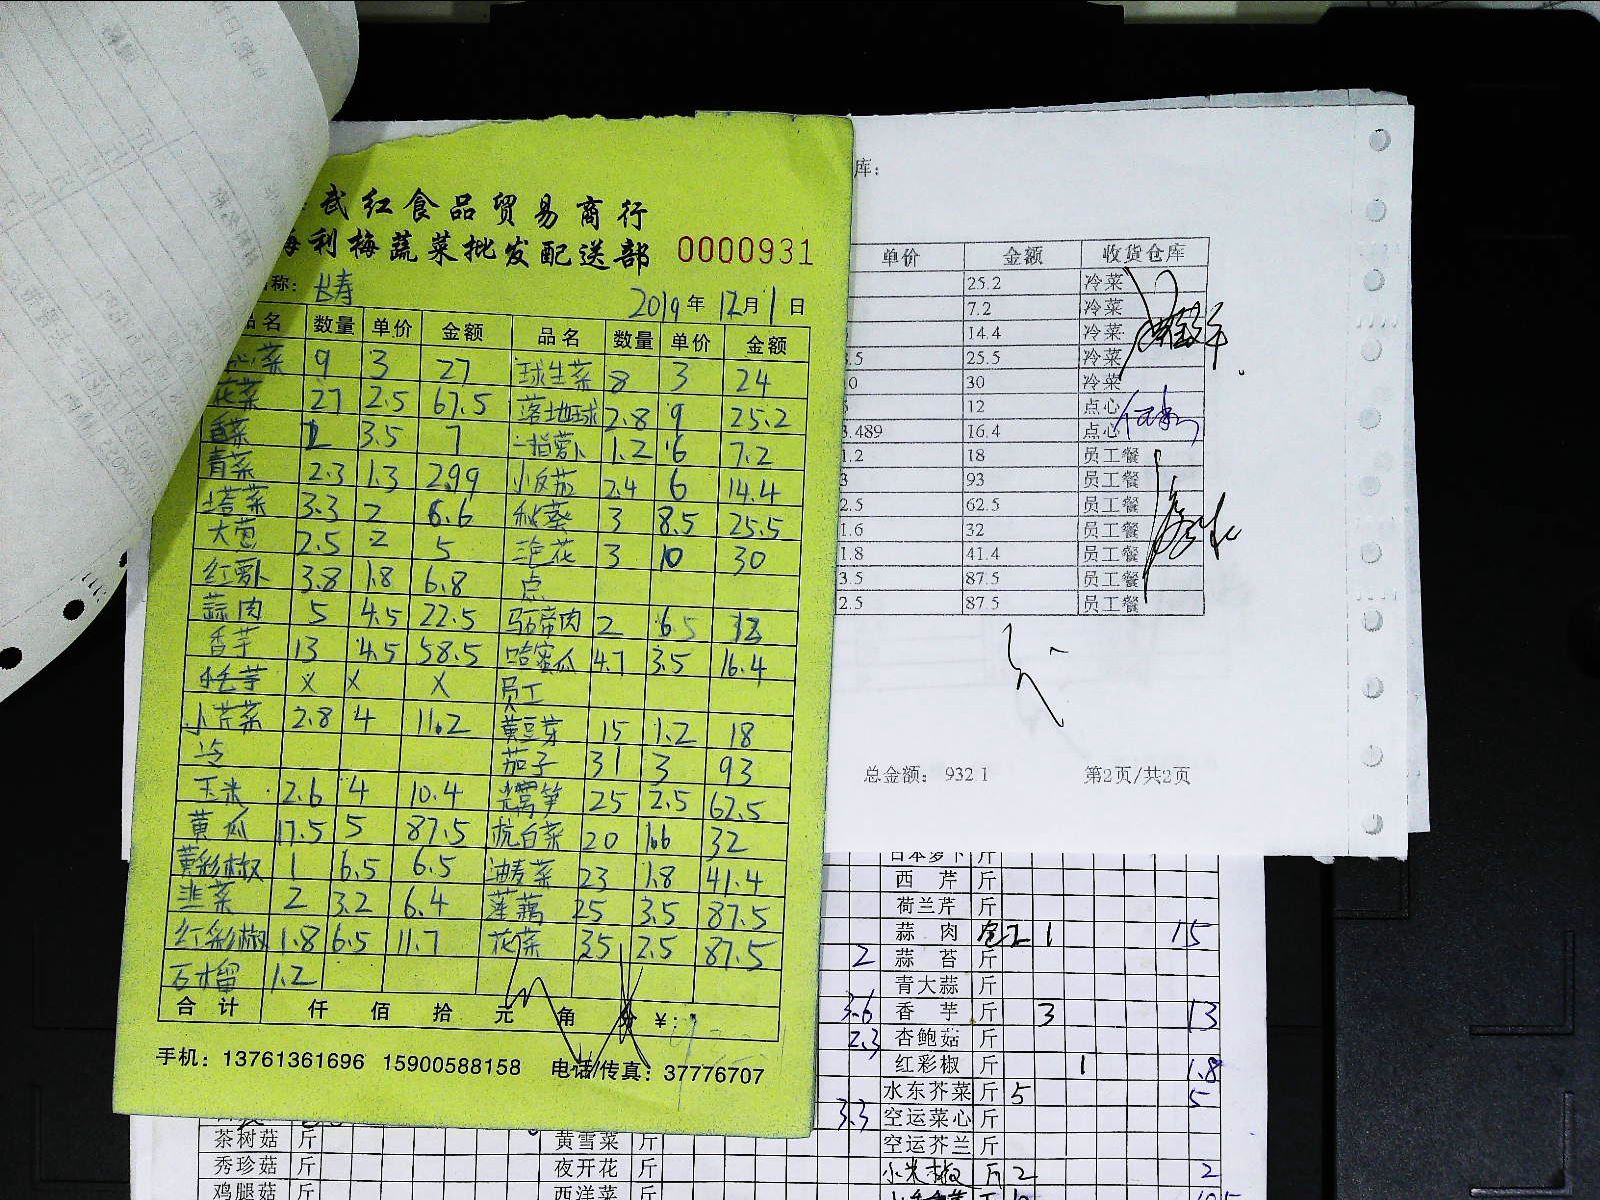 武红食品贸易商行
海利梅蔬菜批发配送部 0000931
称: 长寿
2019年12月1日
品名 数量 单价 金额 品名 数量 单价 金额
菜 9 3 27 球生菜 8 3 24
花菜 27 2.5 67.5 落地球 2.8 9 25.2
香菜 2 3.5 7 一指萝卜 1.2 6 7.2
青菜 2.3 1.3 2.99 小皮茄 2.4 6 14.4
塔菜 3.3 2 6.6 秋葵 3 8.5 25.5
大葱 2.5 2 5 花 3 10 30
红萝卜 3.8 1.8 6.8 点
蒜肉 5 4.5 22.5 马蹄肉 2 6.5
香芋 13 4.5 58.5 哈蜜瓜 4.7 3.5 16.4
小毛芋 X X X 员工
小芹菜 2.8 4 11.2 黄豆芽 15 1.2 18
冷 茄子 31 3 93
玉米 2.6 4 10.4 光莴笋 25 2.5 62.5
黄瓜 17.5 5 87.5 杭白菜 20 1.6 32
黄彩椒 1 6.5 6.5 油麦菜 23 1.8 41.4
韭菜 2 3.2 6.4 莲藕 25 3.5 87.5
红彩椒 1.8 6.5 11.7 花菜 35 2.5 87.5
石榴 1.2
合计 仟 佰 拾 元 角 分 ¥:
手机: 13761361696 15900588158 电话/传真: 37776707
库:
单价 金额 收货仓库
25.2 冷菜
7.2 冷菜
14.4 冷菜
.5 25.5 冷菜
0 30 冷菜
12 点心
3.489 16.4 点心
1.2 18 员工餐
3 93 员工餐
2.5 62.5 员工餐
1.6 32 员工餐
1.8 41.4 员工餐
3.5 87.5 员工餐
2.5 87.5 员工餐
总金额: 932.1 第2页/共2页
日本萝卜 斤
西芹 斤
荷兰芹 斤
蒜肉 1 15
2 蒜苔 斤
青大蒜 斤
3.6 香芋 斤 3 13
2.3 杏鲍菇 斤
红彩椒 斤 1 1.8
水东芥菜 斤 5 5
3.3 空运菜心 斤
茶树菇 斤 黄雪菜 斤 空运芥兰 斤
秀珍菇 斤 夜开花 斤 小米椒 斤 2 2
鸡腿菇 斤 西洋菜 斤